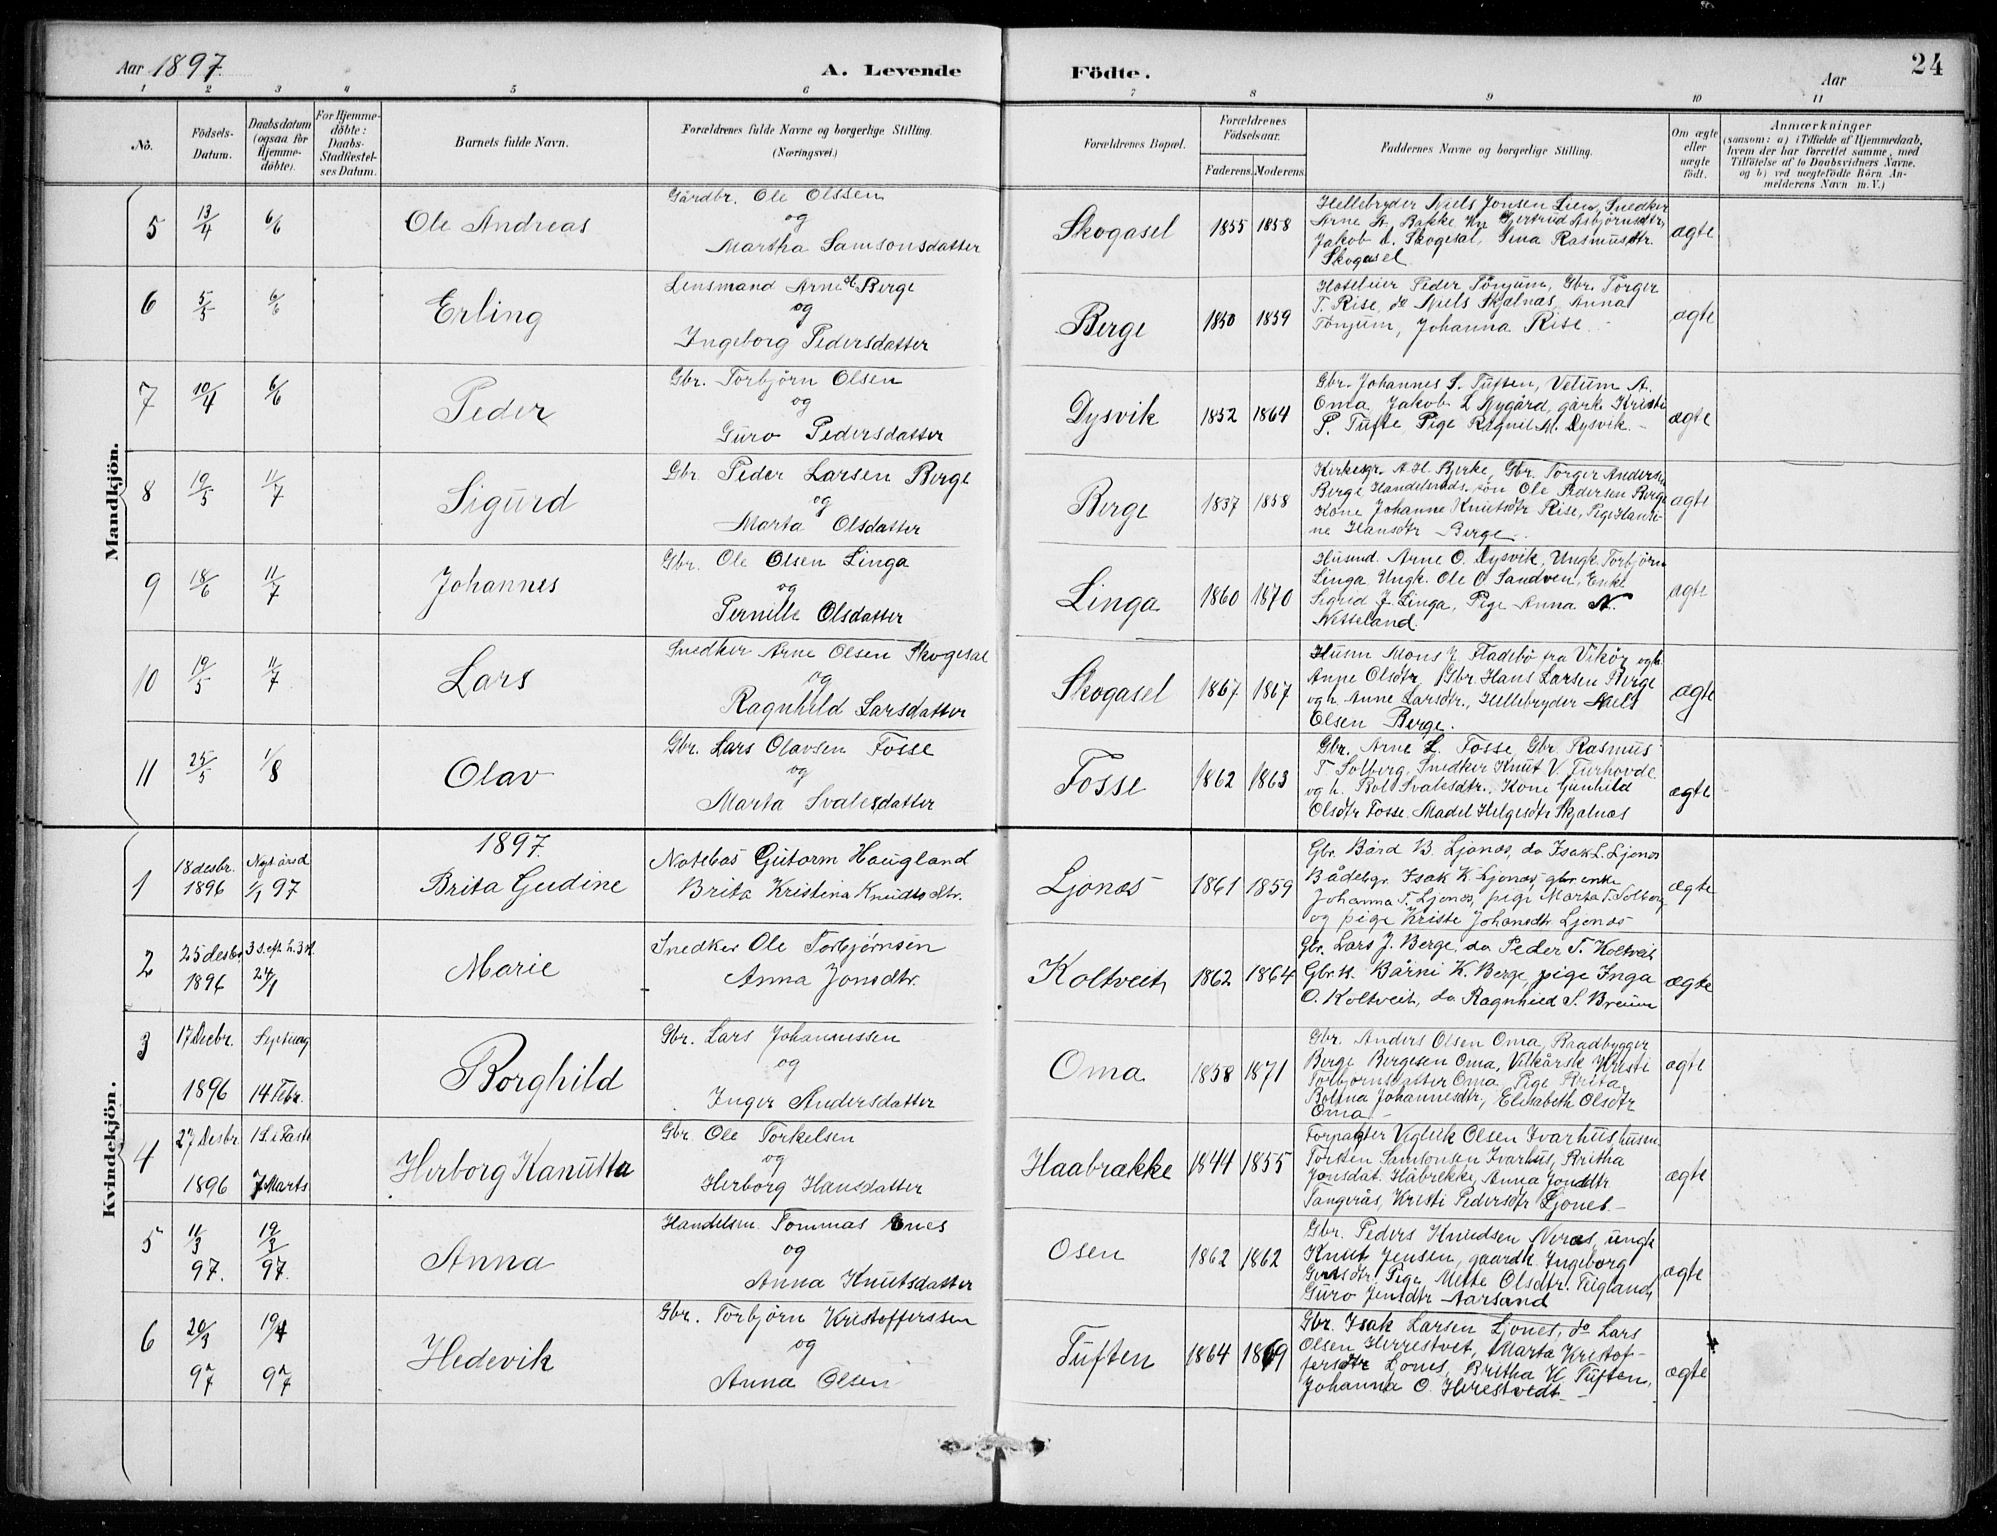 Aar 1897. A. Levende Födte. Aar 24
1 2 3 4 5 6 7 8 9 10 11
No. Födsels-Datum. Daabsdatum (ogsaa for Hjemme-döbte). For Hjemme-döbte: Daabs-Stadfæstel-ses Datum. Barnets fulde Navn. Forældrenes fulde Navne og borgerlige Stilling. (Næringsvei.) Forældrenes Bopæl. Forældrenes Födselsaar. Faderens. Moderens. Faddernes Navne og borgerlige Stilling. Om ægte eller uægte födt. Anmærkninger (saasom: a) i Tilfælde af Hjemmedaab, hvem der har forrettet samme, med Tilföielse af to Daabsvidners Navne, og b) ved uægtefödte Börn An-melderens Navn m. V.)
Mandkjön.
5 13/4 6/6 Ole Andreas Gårdbr. Ole Olssen
og
Martha Samsonsdatter
Skogasel 1855 1858 Hellebryder Niels Jonsen Lien, Snedker
Arne A. Bakke Gjertrud Asbjørnsdtr,
Jakob Skogesal, Sina Rasmusdtr.
Skogasel
ægte
6 5/5 6/6 Erling Lensmand Arne Berge
og
Ingeborg Pedersdatter
Berge 1850 1859 Hoteleier Peder Tönjum, Gbr. Torger
T. Rise, do Niels Skjælnæs, Anna
Tönjum, Johanna Rise.
ægte
7 10/4 6/6 Peder Gbr. Torbjörn Olsen
og
Guro Pedersdatter
Dysvik 1852 1864 Gbr. Johannes S. Tuften, A.
Oma, Jakob L Nygård, gårk. Kristi
P. Tufte, Pige Ragnil M. Dysvik.
ægte
8 19/5 11/7 Sigurd Gbr Peder Larsen Berge
og
Marta Olsdatter
Berge 1857 1858 Kirkesgr. A. H. Bjerke, Gbr. Torger Anderse
Berge Ole Pedersen Berge
Kone Johanne Knutsdtr Rise, Pige Hansi-
ne Hansdtr Berge.
ægte
9 18/6 11/7 Johannes Gbr. Ole Olsen Linga
og
Pernille Olsdatter
Linga 1860 1870 Husmd. Arne O. Dysvik, Ungk Torbjörn
Linga, Ungk. Ole O Sandven, Enke
Sigrid J. Linga, Pige Anna N.
Nesseland.
ægte
10 19/5 11/7 Lars Snedker Arne Olsen Skogesal
og
Ragnhild Larsdatter
Skogasel 1867 1867 Husm Mons J. Fladebö fra Vikör og h.
Anne Olsdtr, Gbr. Hans Larsen Berge
og h. Anne Larsdtr., Hellebryder Niels
Olsen Berge.
ægte
11 25/5 1/8 Olav Gbr. Lars Olavsen Fosse
og
Marta Svalesdatter
Fosse 1862 1863 Gbr. Arne L. Fosse, Gbr. Rasmus
T Solberg, Snedker Knut V. Furhovde
og h. Svalesdtr., Kone Gunhild
Olsdtr Fosse. Madel Helgesdtr Skjælnæs
ægte
Kvindekjön.
1897.
1 18 desbr. 1896 Nytårsd 1/1 97 Brita Gudine Gutorm Haugland
Brita Kristina Knudts dtr.
Ljonæs 1861 1859 Gbr. Bård B. Ljonæs, do Isak L. Ljonæs
Bådebgr. Isak K. Ljonæs, gbr.enke
Johanna T. Ljonæs, pige Marta T. Solberg
og pige Kristi Johansdtr Ljonæs
ægte
2 25 desbr. 1896 3 s. eft. h. 3 k. 24/1 Marie Snedker Ole Torbjörnsen
Anna Jonsdtr.
Koltveit 1862 1864 Gbr. Lars J. Berge, do Peder T. Koltveit,
Gbr.k. Bårni K. Berge, pige Inga
O. Koltveit, do Ragnhild S. Breum
ægte
3 17 Decbr. 1896 14 Febr. Borghild Gbr. Lars Johannessen
og
Inger Andersdatter
Oma 1858 1871 Gbr. Anders Olsen Oma, Baadbygger
Berge Bergesen Oma, Vilkårsk Kristi
Torbjornsdatter Oma. Pige Brita
Johannesdtr, Elisabeth Olsdtr
Oma
ægte
4 27 Desbr. 1896 1 S. i Faste 7 Marts Herborg Kanutta Gbr. Ole Torkelsen
og
Herborg Hansdatter
Haabrække 1844 1855 Forpagter Viglik Olsen Ivarhus, husm
Torsten Samsonsen Ivarhus, Britha
Jonsdat. Håbrekke, Anna Jonsdtr
Tangerås, Kristi Pedersdtr Ljones
ægte
5 11/3 97. 19/3 97. Anna Handelsm. Tommas Enes
og
Anna Knutsdatter
Osen 1862 1862 Gbr. Peders Knudsen Neraas, ungk
Knut Jensen, gaardk. Ingeborg
Pige Mette Olsdtr. Teigland,
Guro Jensdtr Aarsand
ægte
6 20/3 97 19/4 97 Hedevik Gbr. Torbjörn Kristofferssen
og
Anna Olsen
Tuften 1864 1869 Gbr. Isak Larsen Ljones, do Lars
Olsen Herrestvet, Marta Kristof-
fersdtr Ljones, Britha K. Tuften,
Johanna O. Herestvedt
ægte